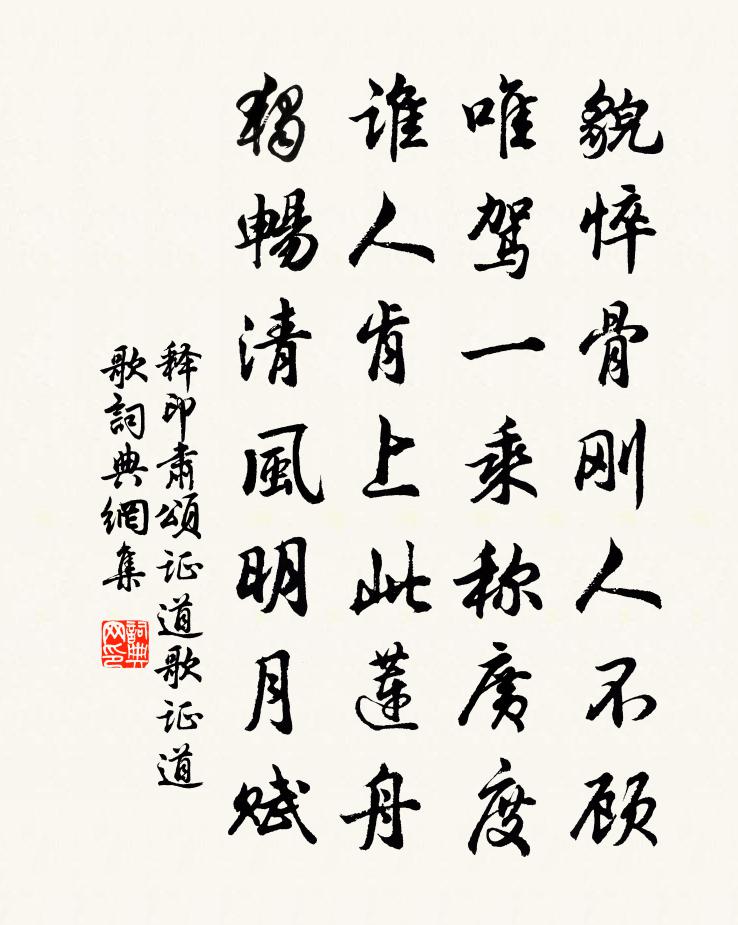 貌悴骨刚人不顾
唯驾一乘称廣度
谁人肯上此蓮舟
獨暢清風明月赋
释印肃頌证道歌证道
歌詞典網集
詞典
网印